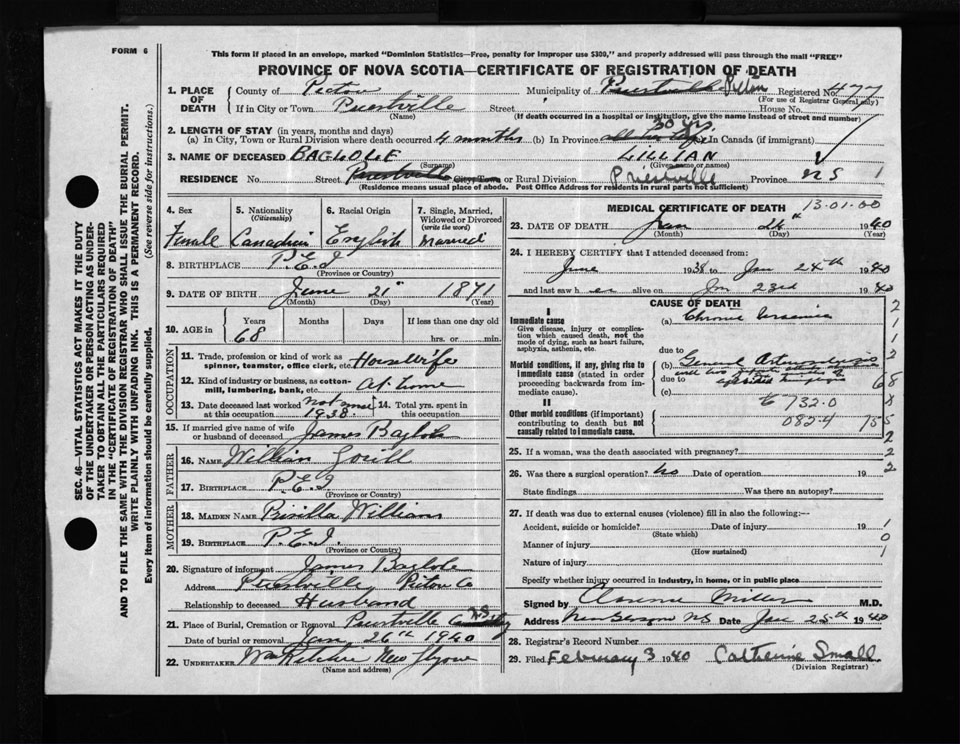 FORM 6
This form if placed in an envelope, marked "Dominion Statistics—Free, penalty for improper use $300," and properly addressed will pass through the mail "FREE"
PROVINCE OF NOVA SCOTIA—CERTIFICATE OF REGISTRATION OF DEATH
SEC. 46—VITAL STATISTICS ACT MAKES IT THE DUTY
OF THE UNDERTAKER OR PERSON ACTING AS UNDER-
TAKER TO OBTAIN ALL THE PARTICULARS REQUIRED
IN THE "CERTIFICATE OF REGISTRATION OF DEATH"
AND TO FILE THE SAME WITH THE DIVISION REGISTRAR WHO SHALL ISSUE THE BURIAL PERMIT.
WRITE PLAINLY WITH UNFADING INK. THIS IS A PERMANENT RECORD.
Every item of information should be carefully supplied. (See reverse side for instructions.)
1. PLACE OF DEATH County of Pictou Municipality of Pictou Registered No. 477
(For use of Registrar General only)
If in City or Town Priestville Street House No.
(Name) (If death occurred in a hospital or institution, give the name instead of street and number)
2. LENGTH OF STAY (in years, months and days) 30 yrs.
(a) In City, Town or Rural Division where death occurred 4 months (b) In Province (c) In Canada (if immigrant)
3. NAME OF DECEASED BAGLOLE LILLIAN
(Surname) (Given name or names)
RESIDENCE No. Street Priestville City, Town or Rural Division Priestville Province NS
(Residence means usual place of abode. Post Office Address for residents in rural parts not sufficient)
4. Sex Female
5. Nationality (Citizenship) Canadian
6. Racial Origin English
7. Single, Married, Widowed or Divorced (write the word) Married
8. BIRTHPLACE P.E.I
(Province or Country)
9. DATE OF BIRTH June 21st 1871
(Month) (Day) (Year)
10. AGE in Years 68 Months Days If less than one day old
hrs. or min.
OCCUPATION
11. Trade, profession or kind of work as spinner, teamster, office clerk, etc. Housewife
12. Kind of industry or business, as cotton-mill, lumbering, bank, etc. At home
13. Date deceased last worked at this occupation Not since 1938
14. Total yrs. spent in this occupation
15. If married give name of wife or husband of deceased James Baglole
FATHER
16. NAME William
17. BIRTHPLACE P.E.I
(Province or Country)
MOTHER
18. MAIDEN NAME Prisilla Williams
19. BIRTHPLACE P.E.I.
(Province or Country)
20. Signature of informant James Baglole
Address Priestville Pictou Co
Relationship to deceased Husband
21. Place of Burial, Cremation or Removal Priestville NS
Date of burial or removal Jan 26th 1940
22. UNDERTAKER Wm Ritchie New Glasgow
(Name and address)
MEDICAL CERTIFICATE OF DEATH 13-01-00
23. DATE OF DEATH Jan 24th 1940
(Month) (Day) (Year)
24. I HEREBY CERTIFY that I attended deceased from:
June 1938 to Jan 24th 1940
and last saw her alive on Jan 23rd 1940
CAUSE OF DEATH
I
Immediate cause (a) Chronic Uraemia
Give disease, injury or complication which caused death, not the mode of dying, such as heart failure, asphyxia, asthenia, etc.
due to
Morbid conditions, if any, giving rise to immediate cause (stated in order proceeding backwards from immediate cause). (b) General Arteriosclerosis
due to
(c)
II
Other morbid conditions (if important) contributing to death but not causally related to immediate cause.
732.0
082.4 755
25. If a woman, was the death associated with pregnancy?
26. Was there a surgical operation? No Date of operation 19
State findings Was there an autopsy?
27. If death was due to external causes (violence) fill in also the following:—
Accident, suicide or homicide? Date of injury 19
(State which)
Manner of injury
(How sustained)
Nature of injury
Specify whether injury occurred in industry, in home, or in public place
Signed by Clarence Miller M.D.
Address New Glasgow NS Date Jan 25th 1940
28. Registrar's Record Number
29. Filed February 3 1940 Catherine Small
(Division Registrar)